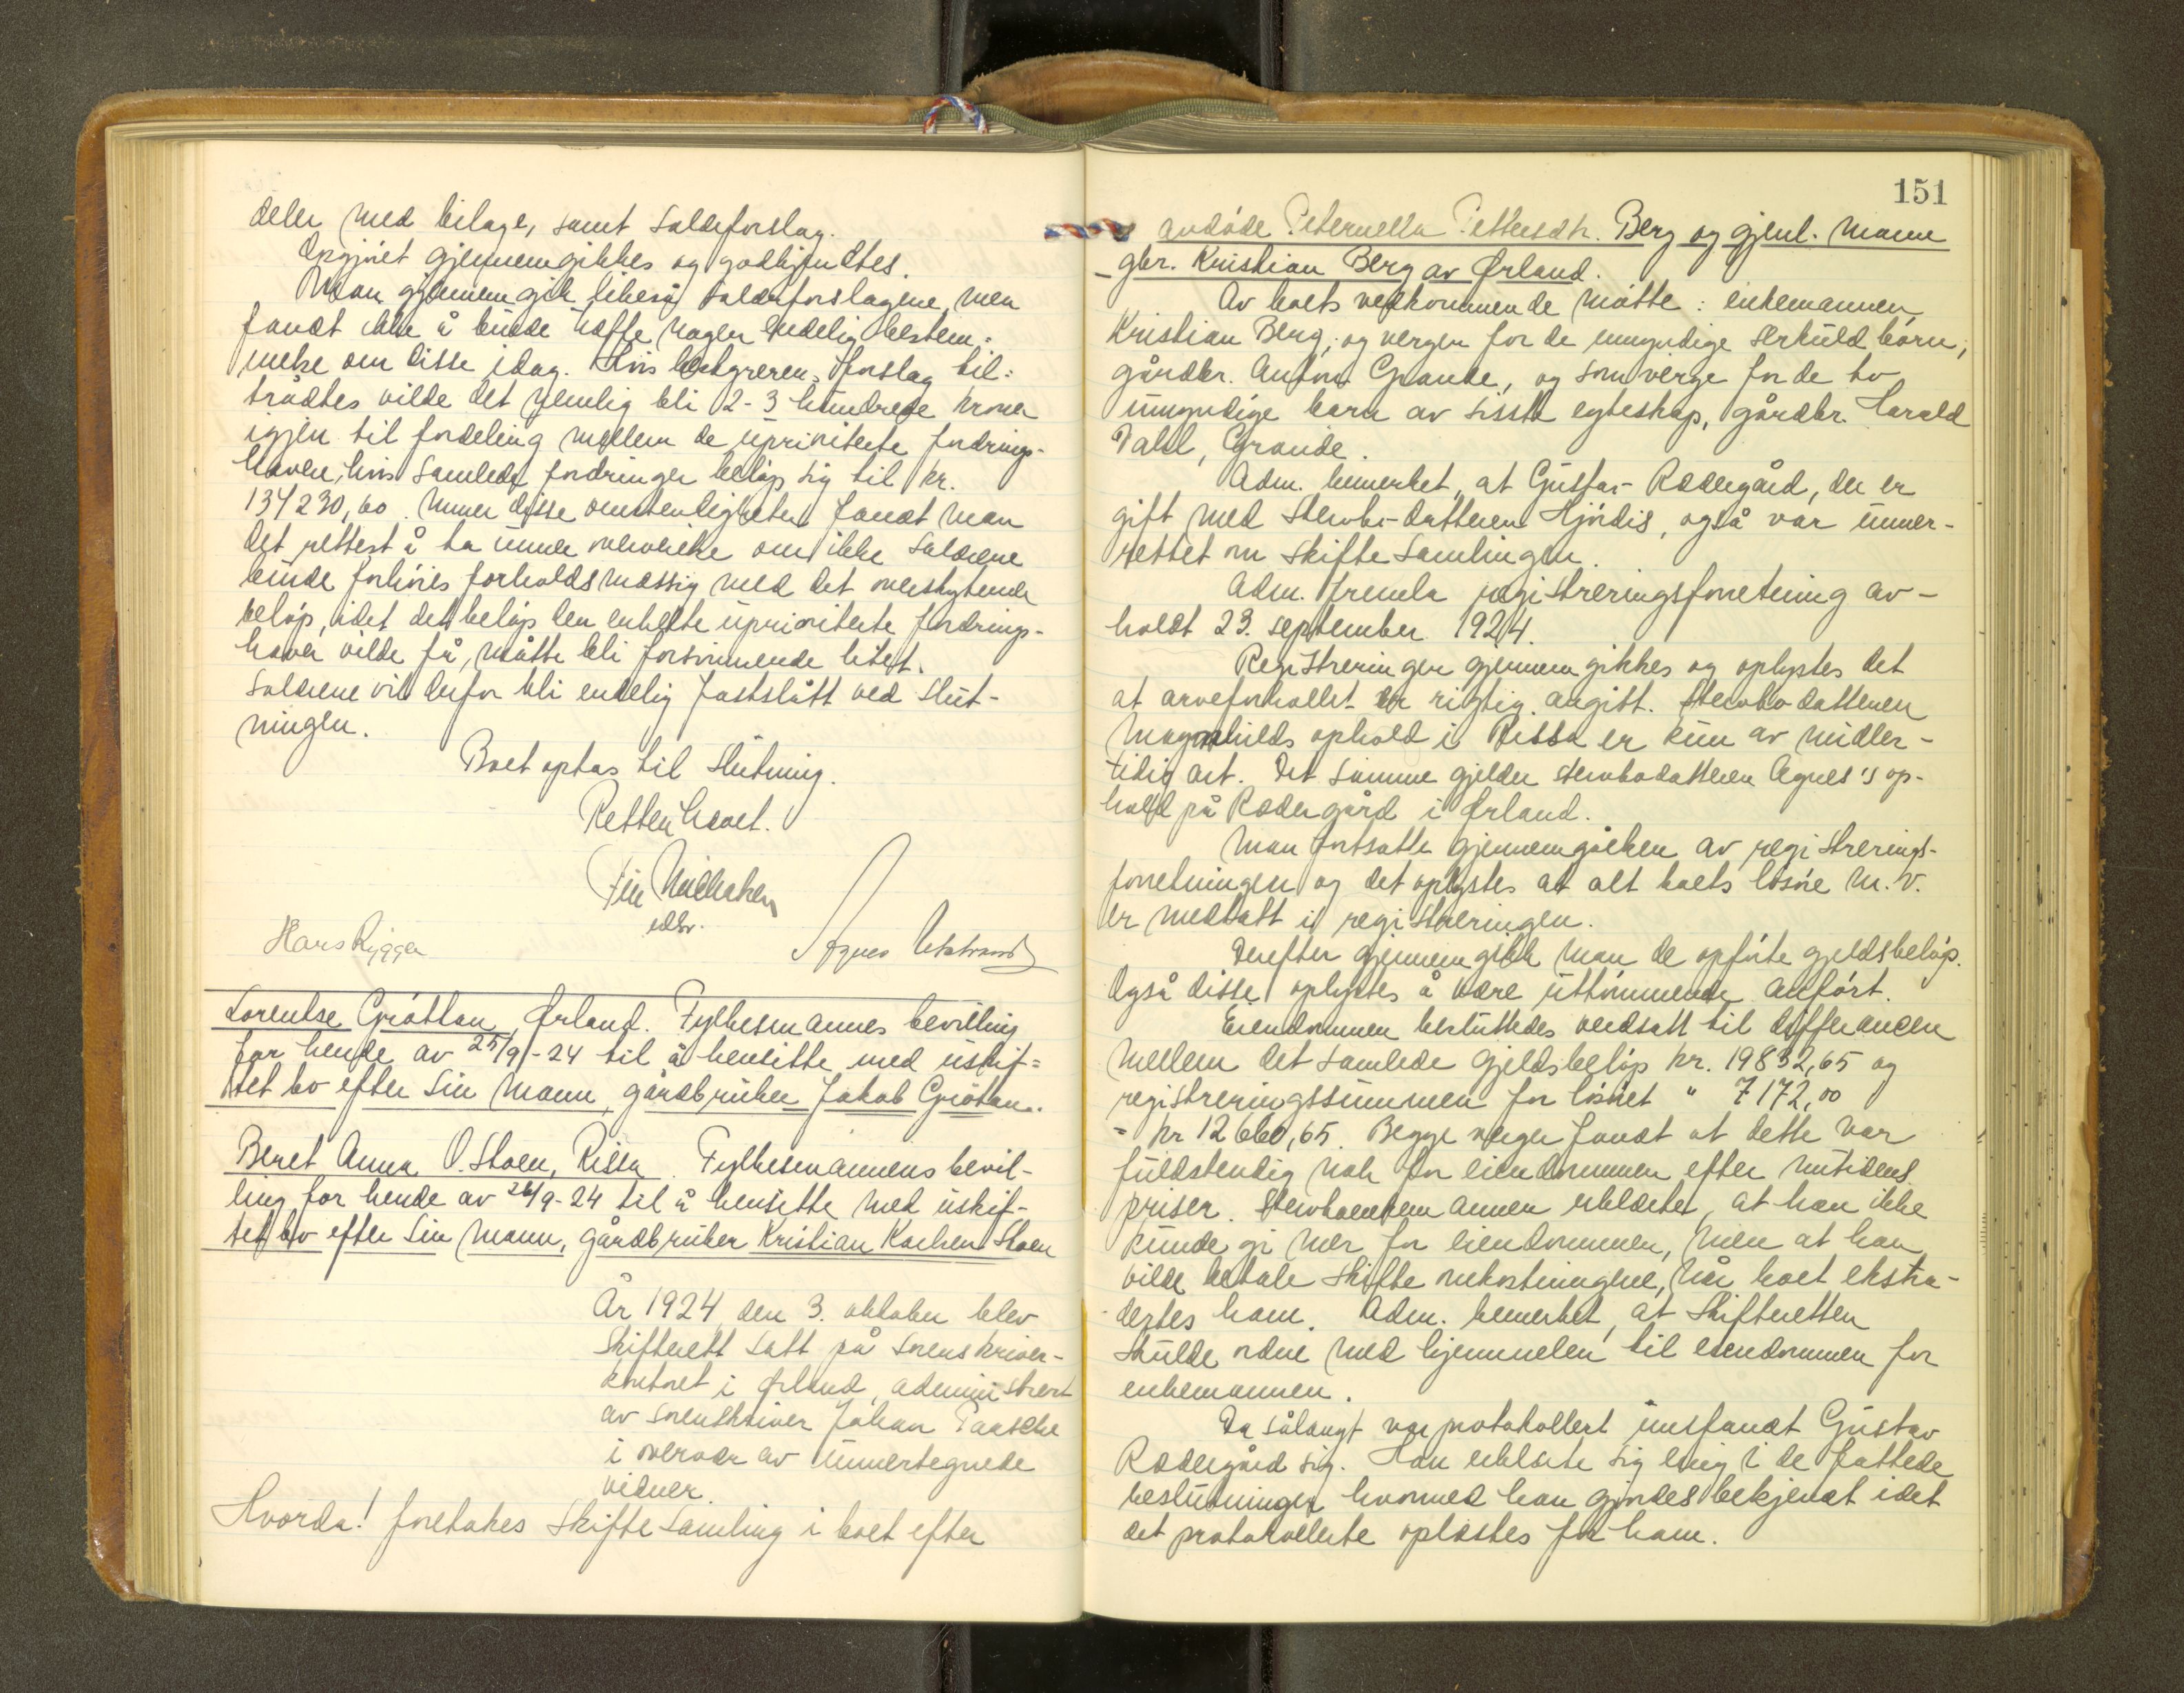 deler med bilage, samt Salærforslag.
Opgjøret gjennemgikkes og godkjendtes.
Man gjennemgik likeså salærforslagene, men
fandt ikke å kunde træffe nogen endelig bestem-
melse om disse idag. Hvis forslag til-
trådtes vilde det nemlig bli 2-3 hundrede kroner
igjen til fordeling mellem de upriviterte fordrings-
havere, hvis samlede fordringer beløp sig til kr.
134230,60. Unner disse omstendigheter fandt man
det rettest å ta unner overveielse om ikke salærene
kunde forhøies forholdsmæssig med det overskytende
beløp, idet det beløp den enkelte uprioriterte fordrings-
haver vilde få, måtte bli forsvinnende litet.
Salærene vil derfor bli endelig fastslått ved slut-
ningen.
Boet optas til slutning.
Retten hævet.
edsv.
Hans Rygger
Agnes
Lorentse Grøttan, Ørland. Fylkesmannes bevilling
for hende av 25/9-24 til å hensitte med uskif-
tet bo efter sin mann, gårdbruker Jakob Grøtan.
Beret Anna O. Stoen, Rissa. Fylkesmannens bevil-
ling for hende av 26/9-24 til å hensitte med uskif-
tet bo efter sin mann, gårdbruker Kristian Stoen
År 1924 den 3. oktober blev
Skifterett satt på sorenskriver-
kontoret i Ørland, administrert
av sorenskriver Johan Paasche
i overvær av unnertegnede
vidner.
Hvorda! foretokes skiftesamling i boet efter
151
avdøde Peternella Pettersdtr. Berg og gjenl. mann
gbr. Kristian Berg av Ørland.
Av boets vedkommende møtte: enkemannen
Kristian Berg, og vergen for de umyndige særkuldbørn,
gårdbr. Anton Grande, og som verge for de to
umyndige barn av siste egteskap, gårdbr. Harald
Dahl, Grande.
Adm. bemerket, at Gustav Rædergård, der er
gift med stervbo-datteren Hjørdis, også var unner-
rettet om skiftesamlingen.
Adm. fremla registreringsforretning av-
holdt 23. september 1924.
Registreringen gjennemgikkes og oplystes det
at arveforholdet er rigtig angitt. Stervbodatteren
Magnhilds ophold i Rissa er kun av midler-
tidig art. Det samme gjelder stervbodatteren Agnes's op-
hold på Rædergård i Ørland.
Man fortsatte gjennemgåelsen av registrerings-
forretningen og det oplystes at alt boets løsøre m.v.
er medtatt i registreringen.
Derefter gjennemgikk man de opførte gjeldsbeløp.
Også disse oplystes å være uttømmende anført.
Eiendommen besluttedes verdsatt til differancen
mellem det samlede gjeldsbeløp kr. 19832,65 og
registreringssummen for løsøret " 7172,00
= kr 12660,65. Begge verger fandt at dette var
fuldstendig nok for eiendommen efter nutidens
priser. Stervboenkemannen erklærte, at han ikke
kunde gi mer for eiendommen, men at han
vilde betale skifteomkostningene, når boet ekstra-
dertes ham. Adm. bemerket, at Skifteretten
skulde ordne med hjemmelen til eiendommen for
enkemannen.
Da sålangt var protokollert innfandt Gustav
Rædergård sig. Han erklærte sig enig i de fattede
beslutninger hvormed han gjordes bekjendt idet
det protokollerte oplæstes for ham.